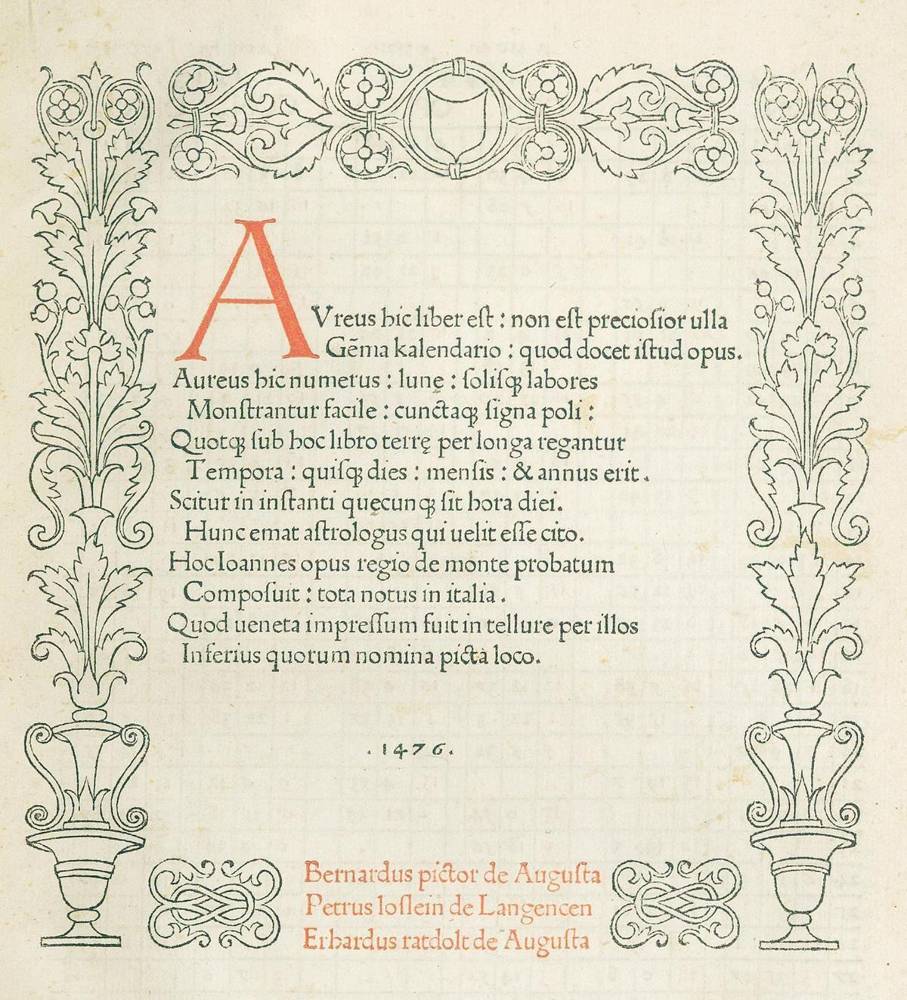 AVreus hic liber est : non est preciosior ulla
Gēma kalendario : quod docet istud opus.
Aureus hic numerus : lunę : solisqꝫ labores
Monstrantur facile : cunctaqꝫ signa poli :
Quotqꝫ sub hoc libro terrę per longa regantur
Tempora : quisqꝫ dies : mensis : & annus erit.
Scitur in instanti quęcunqꝫ sit hora diei.
Hunc emat astrologus qui uelit esse cito.
Hoc Ioannes opus regio de monte probatum
Composuit : tota notus in italia.
Quod ueneta impressum fuit in tellure per illos
Inferius quorum nomina picta loco.
.1476.
Bernardus pictor de Augusta
Petrus loslein de Langencen
Erhardus ratdolt de Augusta